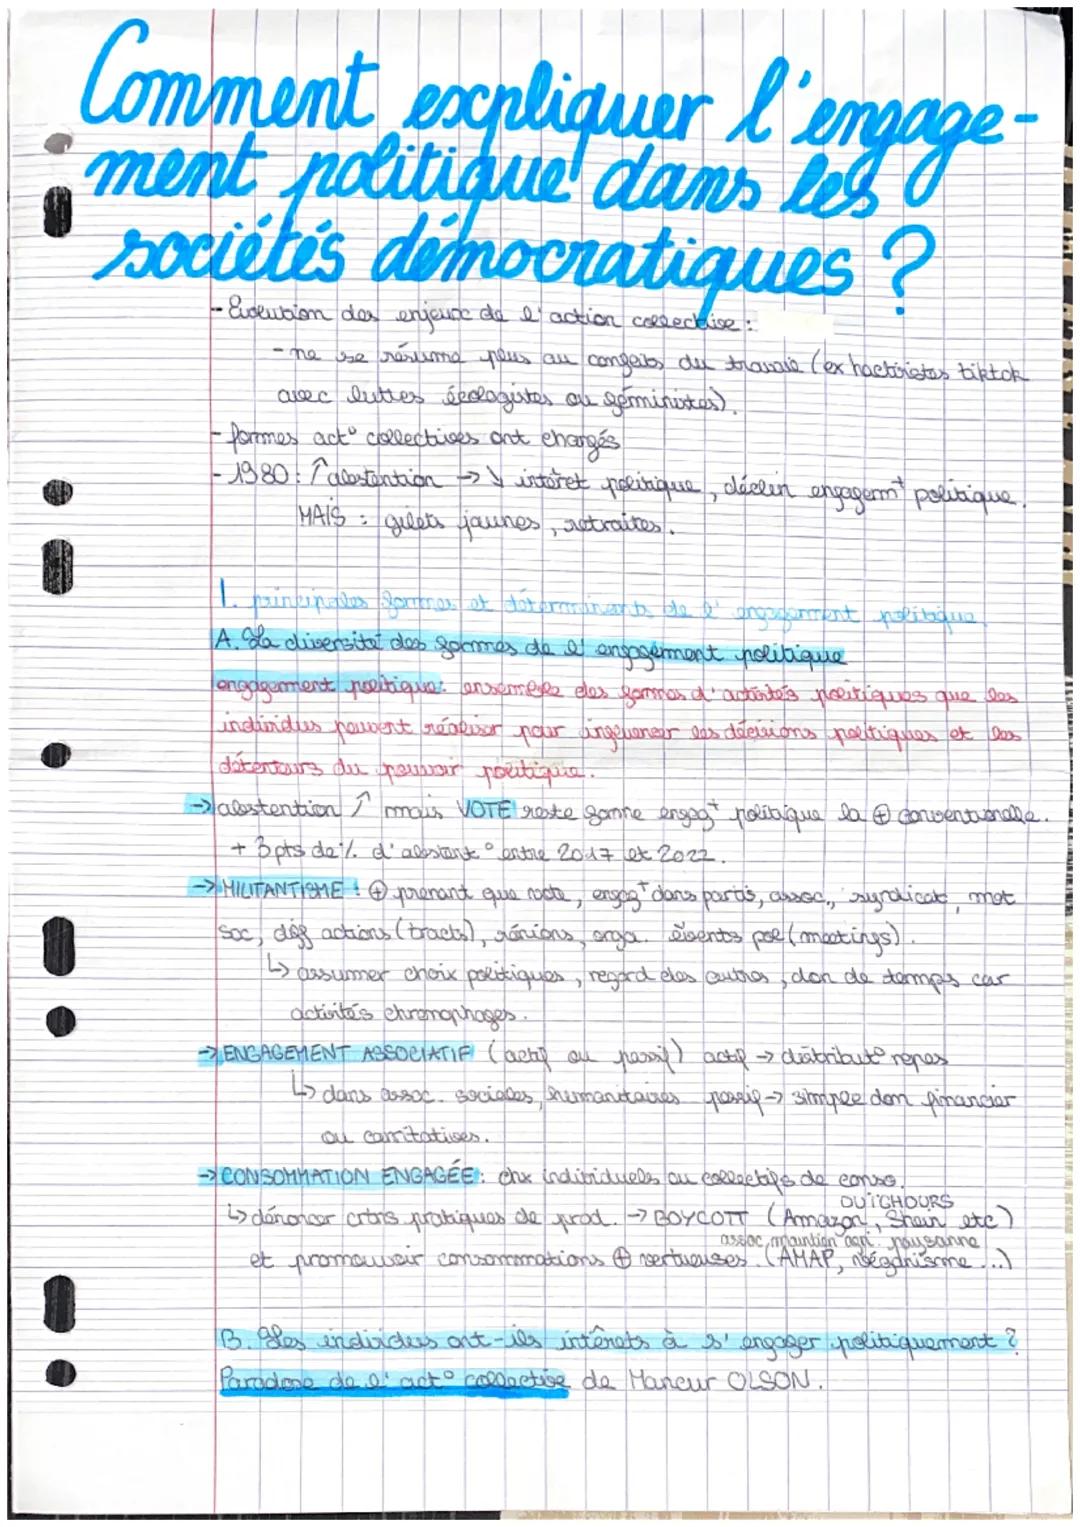 Comment expliquer l'engage-
ment politique dans les
sociétés démocratiques ?
- Evolution des enjeux de l'action collective :
- ne se résume plus au conflits du travail (ex hactivistes tiktok
avec luttes écologistes ou féministes).
- formes act° collectives ont changés
- 1980 : ↑ abstention → ↘ intêret politique, déclin engagemt politique.
MAIS : gilets jaunes, retraites.
I. principales formes et déterminants de l'engagement politique.
A. La diversité des formes de l'engagement politique
engagement politique : ensemble des formes d'activités politiques que les
individus peuvent réaliser pour influencer les décisions politiques et les
détenteurs du pouvoir politique.
→ abstention ↑ mais VOTE reste forme engagt politique la ⊕ conventionelle.
+ 3 pts de % d'abstent° entre 2017 et 2022.
→ MILITANTISME : ⊕ prenant que vote, engagt dans partis, assoc., syndicat, mvt
soc, diff actions (tracts), réunions, orga. évents pol (meetings).
↳ assumer choix politiques, regard des autres, don de temps car
activités chronophages.
→ ENGAGEMENT ASSOCIATIF (actif ou passif) actif → distribut° repas
↳ dans assoc. sociales, humanitaires passif → simple don financier
ou carritatives.
→ CONSOMMATION ENGAGÉE : chx individuels ou collectifs de conso.
OUÏGHOURS
↳ dénoncer crtns pratiques de prod. → BOYCOTT (Amazon, Shein etc)
assoc maintien agri. paysanne
et promouvoir consommations ⊕ vertueuses. (AMAP, véganisme ...)
B. Les individus ont-ils intérêts à s'engager politiquement ?
Paradoxe de l'act° collective de Mancur OLSON.